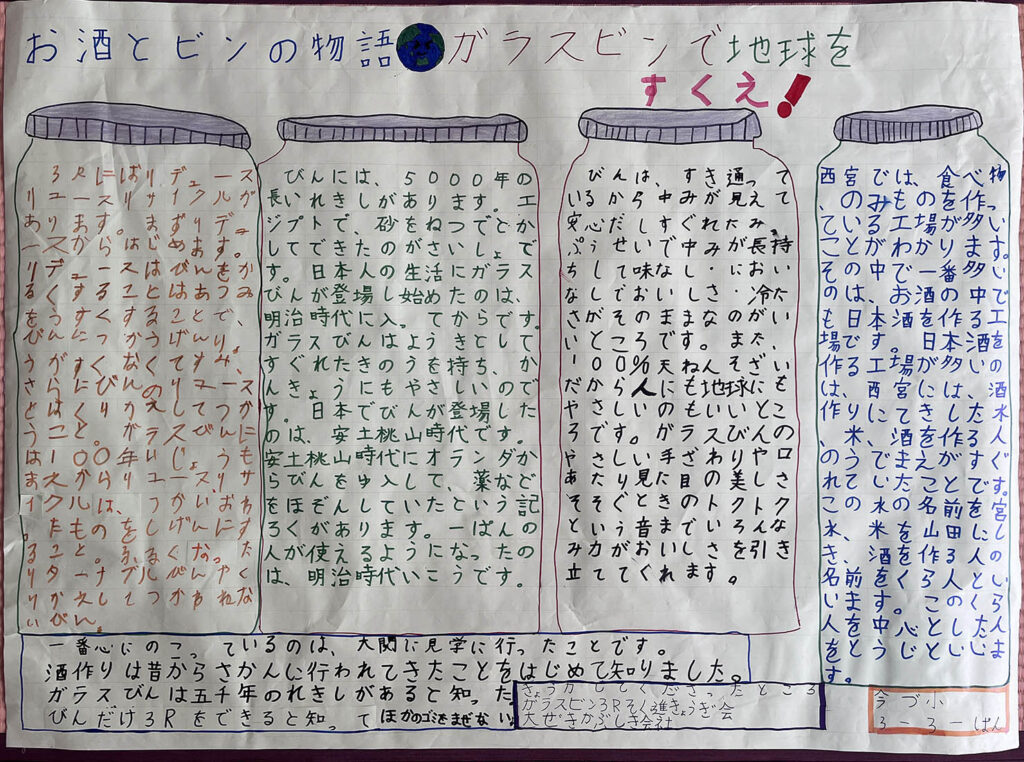 お酒とビンの物語 ガラスビンで地球を
すくえ!
3Rにはリデュース
リユースリサイクルが
あります。まずリデュ
ースからはじめます。
リデュースはびんをか
るくすることはあつみ
をうすくすることで、
びんにつかうげんりょ
うがすくなくてすみ、
さらにびんのリユース
とはくりかえしてつか
うこと。ガラスびんに
は100年いじょうも
まえからリユースリサ
イクルは、つかいおわ
ったものをしげんにす
ること。ふるくなった
リターナブルびんやく
りかえしてつかわれな
いびん。
びんには、5000年の
長いれきしがあります。エ
ジプトで、砂をねつでとか
してできたのがさいしょで
す。日本人の生活にガラス
びんが登場し始めたのは、
明治時代に入ってからです。
ガラスびんはようきとして
すぐれたきのうを持ち、か
んきょうにもやさしいので
す。日本でびんが登場した
のは、安土桃山時代です。
安土桃山時代にオランダか
らびんをゆ入して、薬など
をほぞんしていたという記
ろくがあります。一ぱんの
人が使えるようになったの
は、明治時代いこうです。
びんは、すき通って
いるから中みが見えて
安心だしすぐれたみっ
ぷうせいで中みが長持
ちして味なし・におい
なしでおいしさ・冷た
さがそのままなのがい
いところです。また、
100%天ねんそざい
だから人にも地球にも
やさしいのもいいとこ
ろです。ガラスびんの
やさしい手ざわりや口
あたり見た目の美しさ
そそぐときのトクトク
という音までいろんな
み力がおいしさを引き
立ててくれます。
西宮では、食べ物
、のみものを作っ
ている工場が多い
ことがわかります。
その中で一番多い
のは、お酒の中で
も日本酒を作る工
場です。日本酒を
作る工場が多いの
は、西宮には、酒
作りにてきした水
、米、酒を作る人
のうでまえがすぐ
れていたのです。
この水の名前を宮
水、米を山田にし
き、酒を作る人の
名前をくら人とい
います。このくら
人を中心とした
をとうじといいま
す。
一番心にのこっているのは、大関に見学に行ったことです。
酒作りは昔からさかんに行われてきたことをはじめて知りました。
ガラスびんは五千年のれきしがあると知った
びんだけ3Rをできると知って ほかのゴミをまぜない。
きょう力してくださったところ
ガラスビン3Rそく進きょうぎ会
大ぜきかぶしき会社
今づ小
3-3-1ぱん